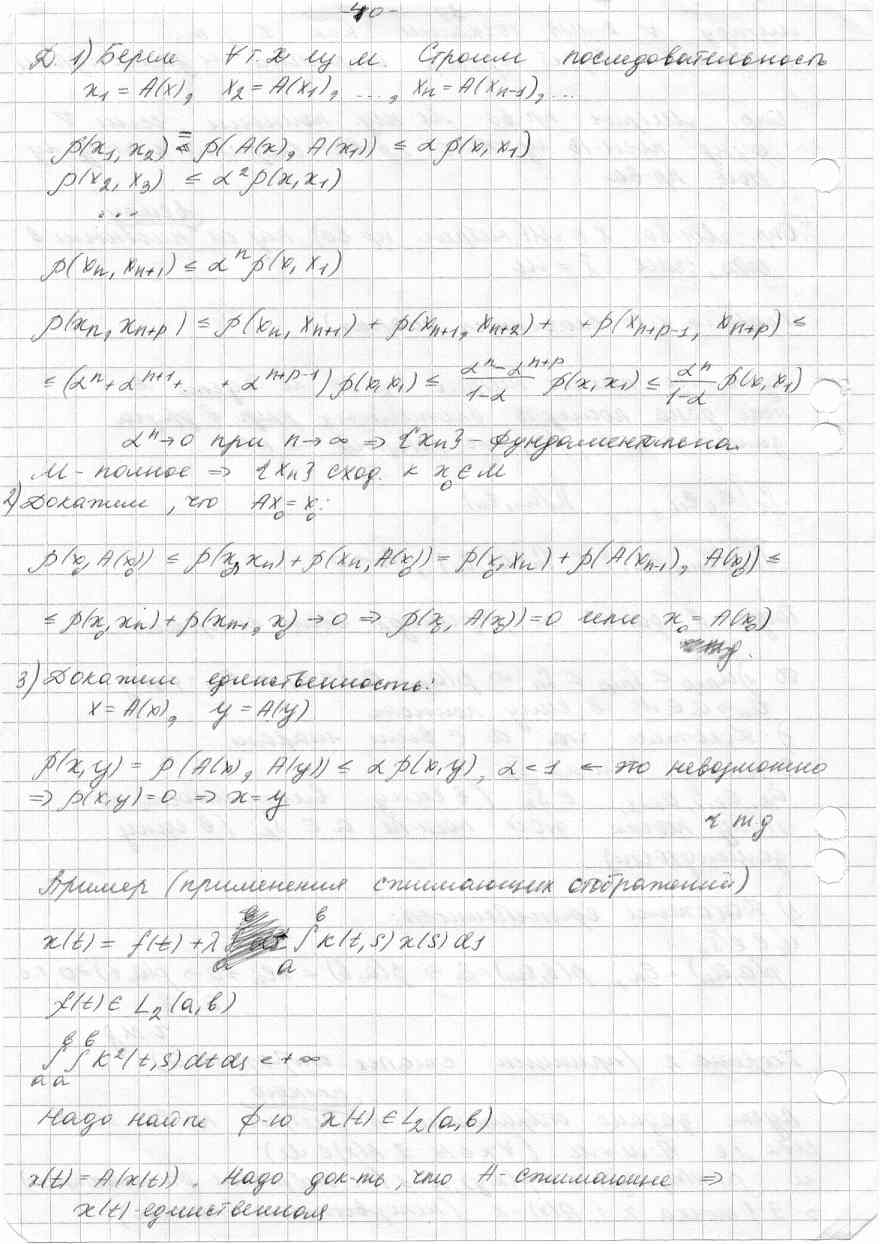 -40-
Д. 1) Берем ∀ т. x из M. Строим последовательность
x₁ = A(x), x₂ = A(x₁), ..., xₙ = A(xₙ₋₁), ...
ρ(x₁, x₂) = ρ(A(x), A(x₁)) ≤ αρ(x, x₁)
ρ(x₂, x₃) ≤ α²ρ(x, x₁)
...
ρ(xₙ, xₙ₊₁) ≤ αⁿρ(x, x₁)
ρ(xₙ, xₙ₊ₚ) ≤ ρ(xₙ, xₙ₊₁) + ρ(xₙ₊₁, xₙ₊₂) + .. + ρ(xₙ₊ₚ₋₁, xₙ₊ₚ) ≤
≤ (αⁿ + αⁿ⁺¹ + .. + αⁿ⁺ᵖ⁻¹) ρ(x, x₁) ≤ (αⁿ - αⁿ⁺ᵖ)/(1-α) ρ(x, x₁) ≤ αⁿ/(1-α) ρ(x, x₁)
αⁿ → 0 при n → ∞ ⇒ {xₙ} - фундаментальна.
M - полное ⇒ {xₙ} сход. к x₀ ∈ M
2) Докажем, что Ax₀ = x₀:
ρ(x₀, A(x₀)) ≤ ρ(x₀, xₙ) + ρ(xₙ, A(x₀)) = ρ(x₀, xₙ) + ρ(A(xₙ₋₁), A(x₀)) ≤
≤ ρ(x₀, xₙ) + ρ(xₙ₋₁, x₀) → 0 ⇒ ρ(x₀, A(x₀)) = 0 или x₀ = A(x₀)
3) Докажем единственность:
x = A(x), y = A(y)
ρ(x, y) = ρ(A(x), A(y)) ≤ αρ(x, y), α < 1 ← это невозможно
⇒ ρ(x, y) = 0 ⇒ x = y
ч т д
Пример (применения сжимающих отображений)
x(t) = f(t) + λ ∫ₐᵇ K(t, s) x(s) ds
f(t) ∈ L₂(a, b)
∫ₐᵇ ∫ₐᵇ K²(t, s) dt ds < +∞
Надо найти ф-ю x(t) ∈ L₂(a, b)
x(t) = A(x(t)). Надо док-ть, что A - сжимающее ⇒
x(t) - единственная